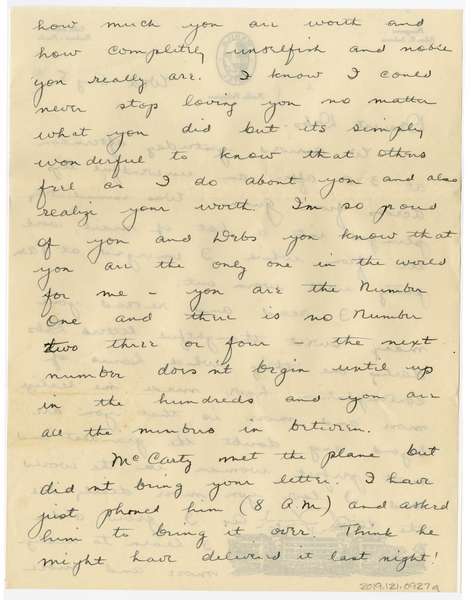 how much you are worth and
how completely unselfish and noble
you really are. I know I could
never stop loving you no matter
what you did but its simply
wonderful to know that others
feel as I do about you and also
realize your worth. I'm so proud
of you and Debs you know that
you are the only one in the world
for me – you are the Number
One and there is no Number
two three or four – the next
number does n't begin until up
in the hundreds and you are
all the numbers in between.
McCarty met the plane but
did n't bring your letter. I have
just phoned him (8 A.M) and asked
him to bring it over. Think he
might have delivered it last night!
2019.121.0927a